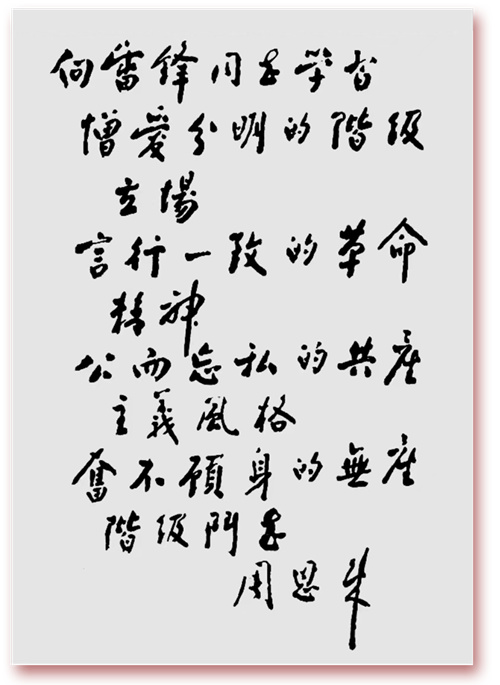 向雷鋒同志学習
憎愛分明的階級
立場
言行一致的革命
精神
公而忘私的共産
主義風格
奮不顧身的無産
階級鬥志
周恩来